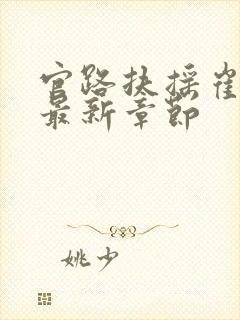 官路扶摇崔
最新章节
姚少